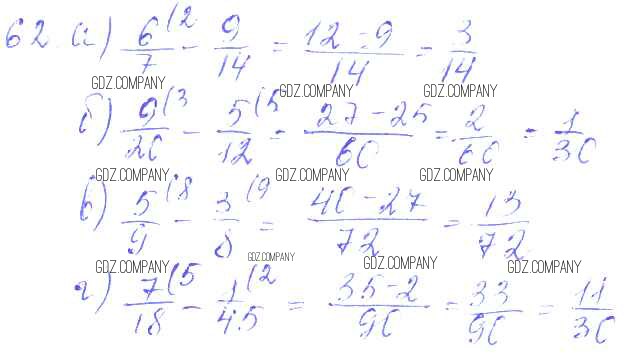 62. а) 6/7 (2 - 9/14 = 12-9/14 = 3/14
GDZ.COMPANY GDZ.COMPANY GDZ.COMPANY
б) 9/20 (3 - 5/12 (5 = 27-25/60 = 2/60 = 1/30
GDZ.COMPANY GDZ.COMPANY GDZ.COMPANY
в) 5/9 (8 - 3/8 (9 = 40-27/72 = 13/72
GDZ.COMPANY GDZ.COMPANY GDZ.COMPANY GDZ.COMPANY
г) 7/18 (5 - 1/45 (2 = 35-2/90 = 33/90 = 11/30